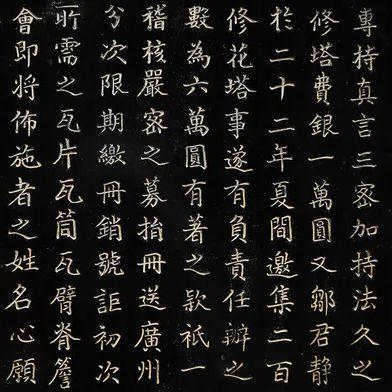 專持真言三密加持法久之
修塔費銀一萬圓又鄒君靜
於二十二年夏間邀集二百
修花塔事遂有負責任辦之
數為六萬圓有著之款祇一
稽核嚴密之募捐冊送廣州
兮次限期繳冊銷號詎初次
所需之瓦片瓦筒瓦臂脊簷
會即將佈施者之姓名心願